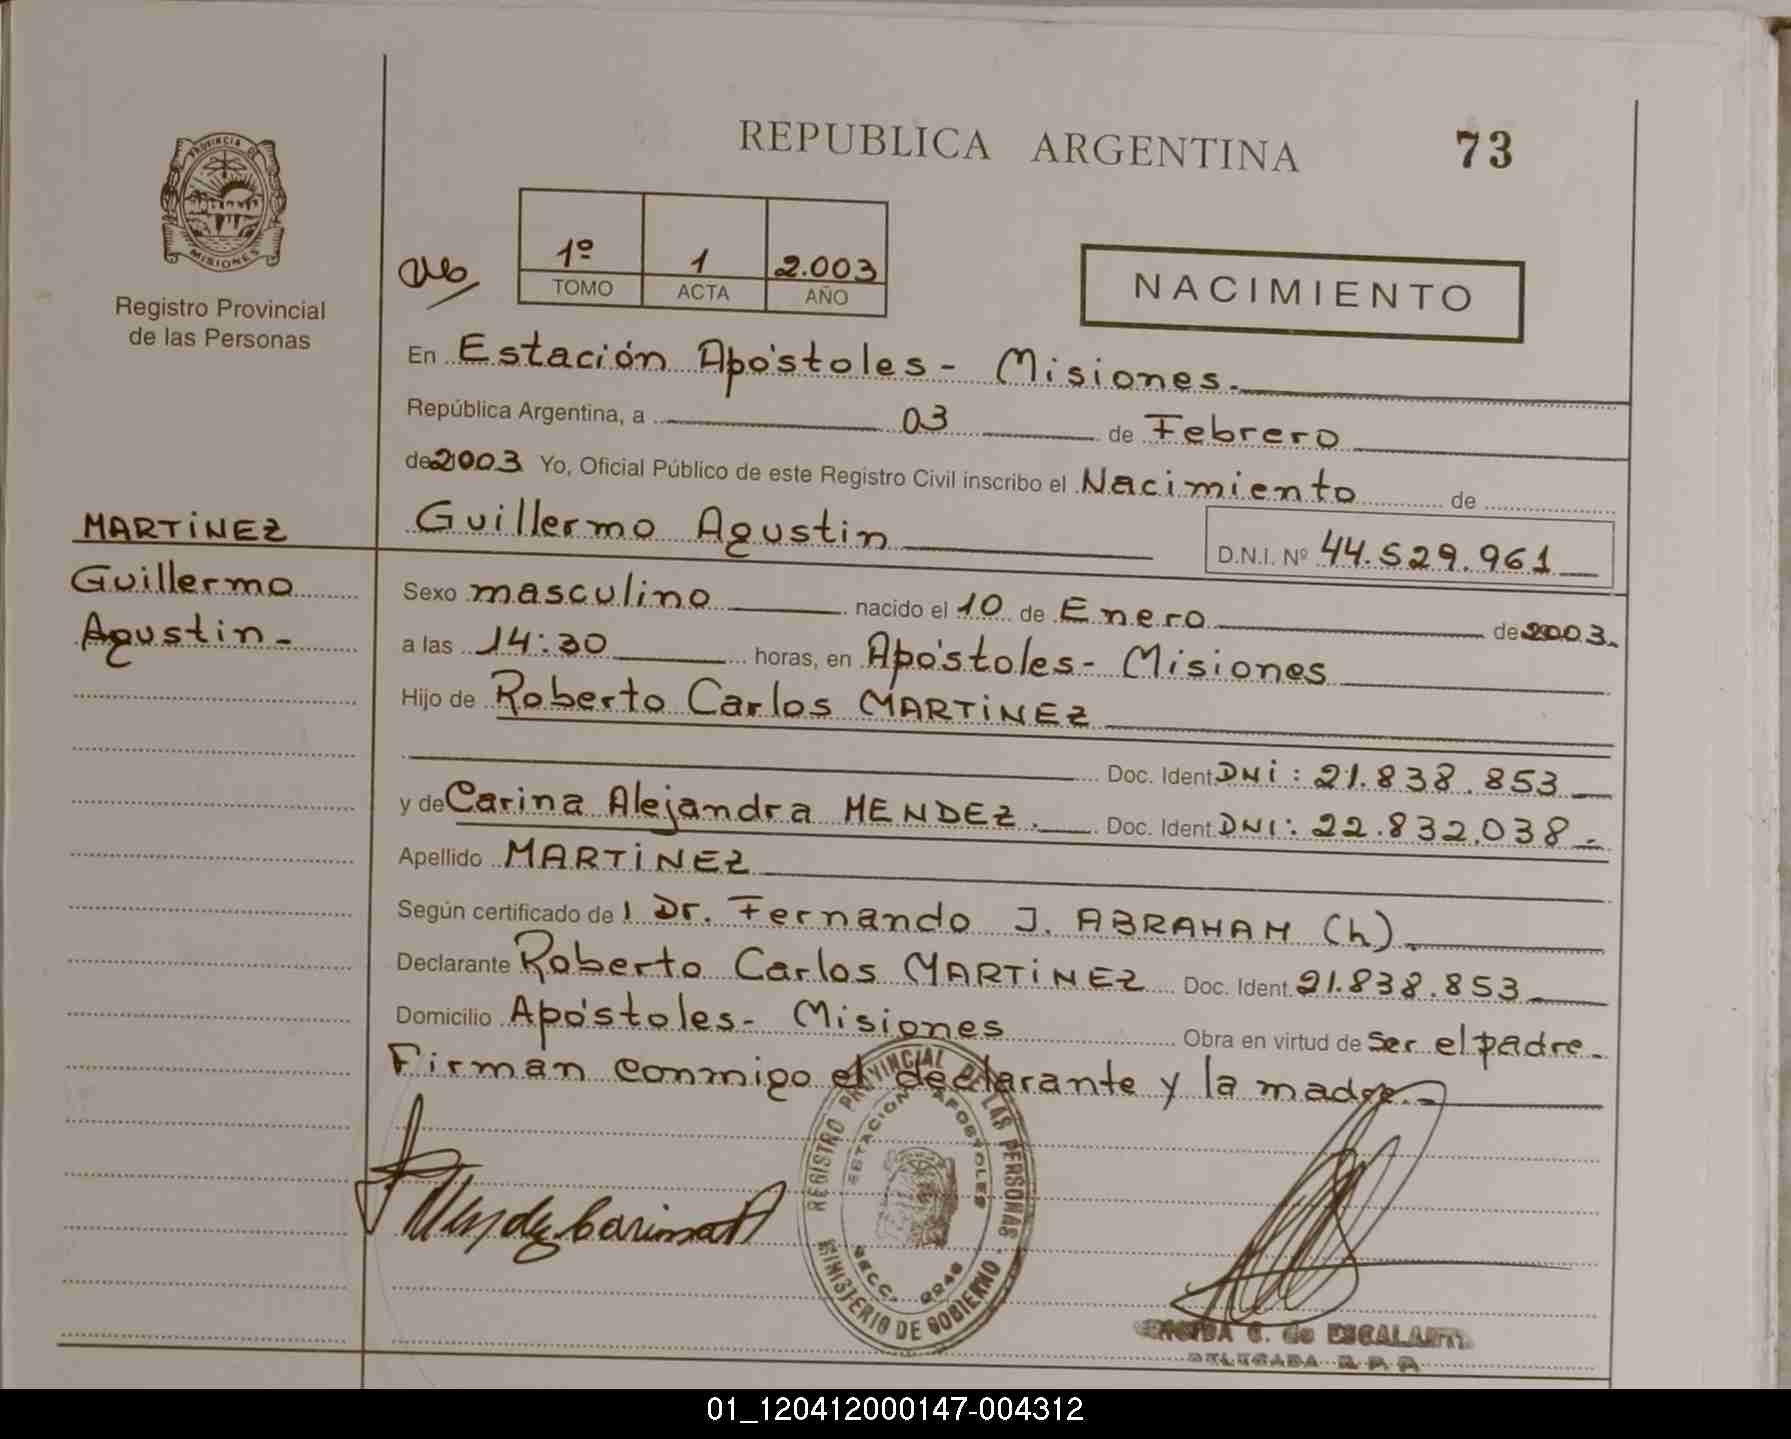 REPUBLICA ARGENTINA
73
PROVINCIA DE
MISIONES
Registro Provincial
de las Personas
1º 1 2.003
TOMO ACTA AÑO
NACIMIENTO
En Estación Apóstoles - Misiones.
República Argentina, a 03 de Febrero
de 2003 Yo, Oficial Público de este Registro Civil inscribo el Nacimiento de
Guillermo Agustin D.N.I. Nº 44.529.961
MARTiNEZ
Guillermo
Agustin -
Sexo masculino nacido el 10 de Enero de 2003.
a las 14:30 horas, en Apóstoles - Misiones
Hijo de Roberto Carlos MARTiNEZ
Doc. Ident. DNi: 21.838.853
y de Carina Alejandra MENDEZ. Doc. Ident. DNI: 22.832.038 -
Apellido MARTiNEZ
Según certificado de l Dr. Fernando J. ABRAHAM (h).
Declarante Roberto Carlos MARTiNEZ Doc. Ident. 21.838.853
Domicilio Apóstoles - Misiones Obra en virtud de Ser el padre.
Firman conmigo el declarante y la madre. -
REGISTRO PROVINCIAL DE LAS PERSONAS
ESTACION APOSTOLES
MINISTERIO DE GOBIERNO
Mendez Carina A
C. de ESCALANTE
DELEGADA R.P.P.
01_120412000147-004312